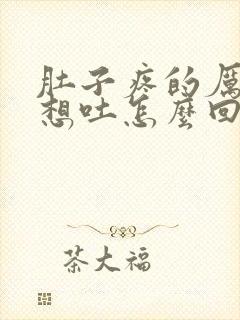 肚子疼的厲
想吐怎麼回
茶大福